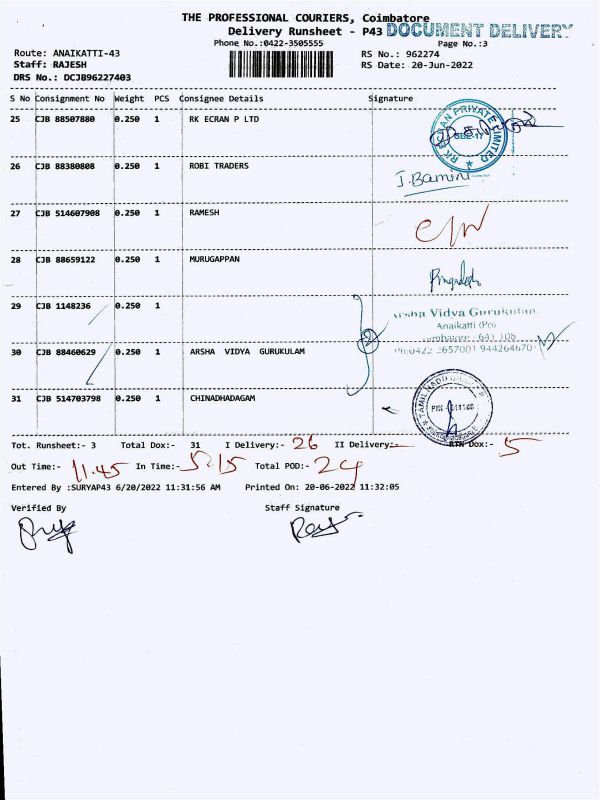 THE PROFESSIONAL COURIERS, Coimbatore
Delivery Runsheet - P43 DOCUMENT DELIVERY
Phone No.:0422-3505555 Page No.:3
Route: ANAIKATTI-43 RS No.: 962274
Staff: RAJESH RS Date: 20-Jun-2022
DRS No.: DCJ896227403
S No Consignment No Weight PCS Consignee Details Signature
25 CJB 88507880 0.250 1 RK ECRAN P LTD
RK ECRAN PRIVATE LIMITED
26 CJB 88380808 0.250 1 ROBI TRADERS J. Bamini
27 CJB 514607908 0.250 1 RAMESH
28 CJB 88659122 0.250 1 MURUGAPPAN
29 CJB 1148236 0.250 1
Arsha Vidya Gurukulam
Anaikatti (Po)
Coimbatore - 641 108
30 CJB 88460629 0.250 1 ARSHA VIDYA GURUKULAM 2
Ph:0422 2657001
31 CJB 514703798 0.250 1 CHINADHADAGAM
TAMIL NADU
Tot. Runsheet:- 3 Total Dox:- 31 I Delivery:- 26 II Delivery:- RTN Dox:- 5
Out Time:- 11.45 In Time:- 5.15 Total POD:- 24
Entered By :SURYAP43 6/20/2022 11:31:56 AM Printed On: 20-06-2022 11:32:05
Verified By Staff Signature